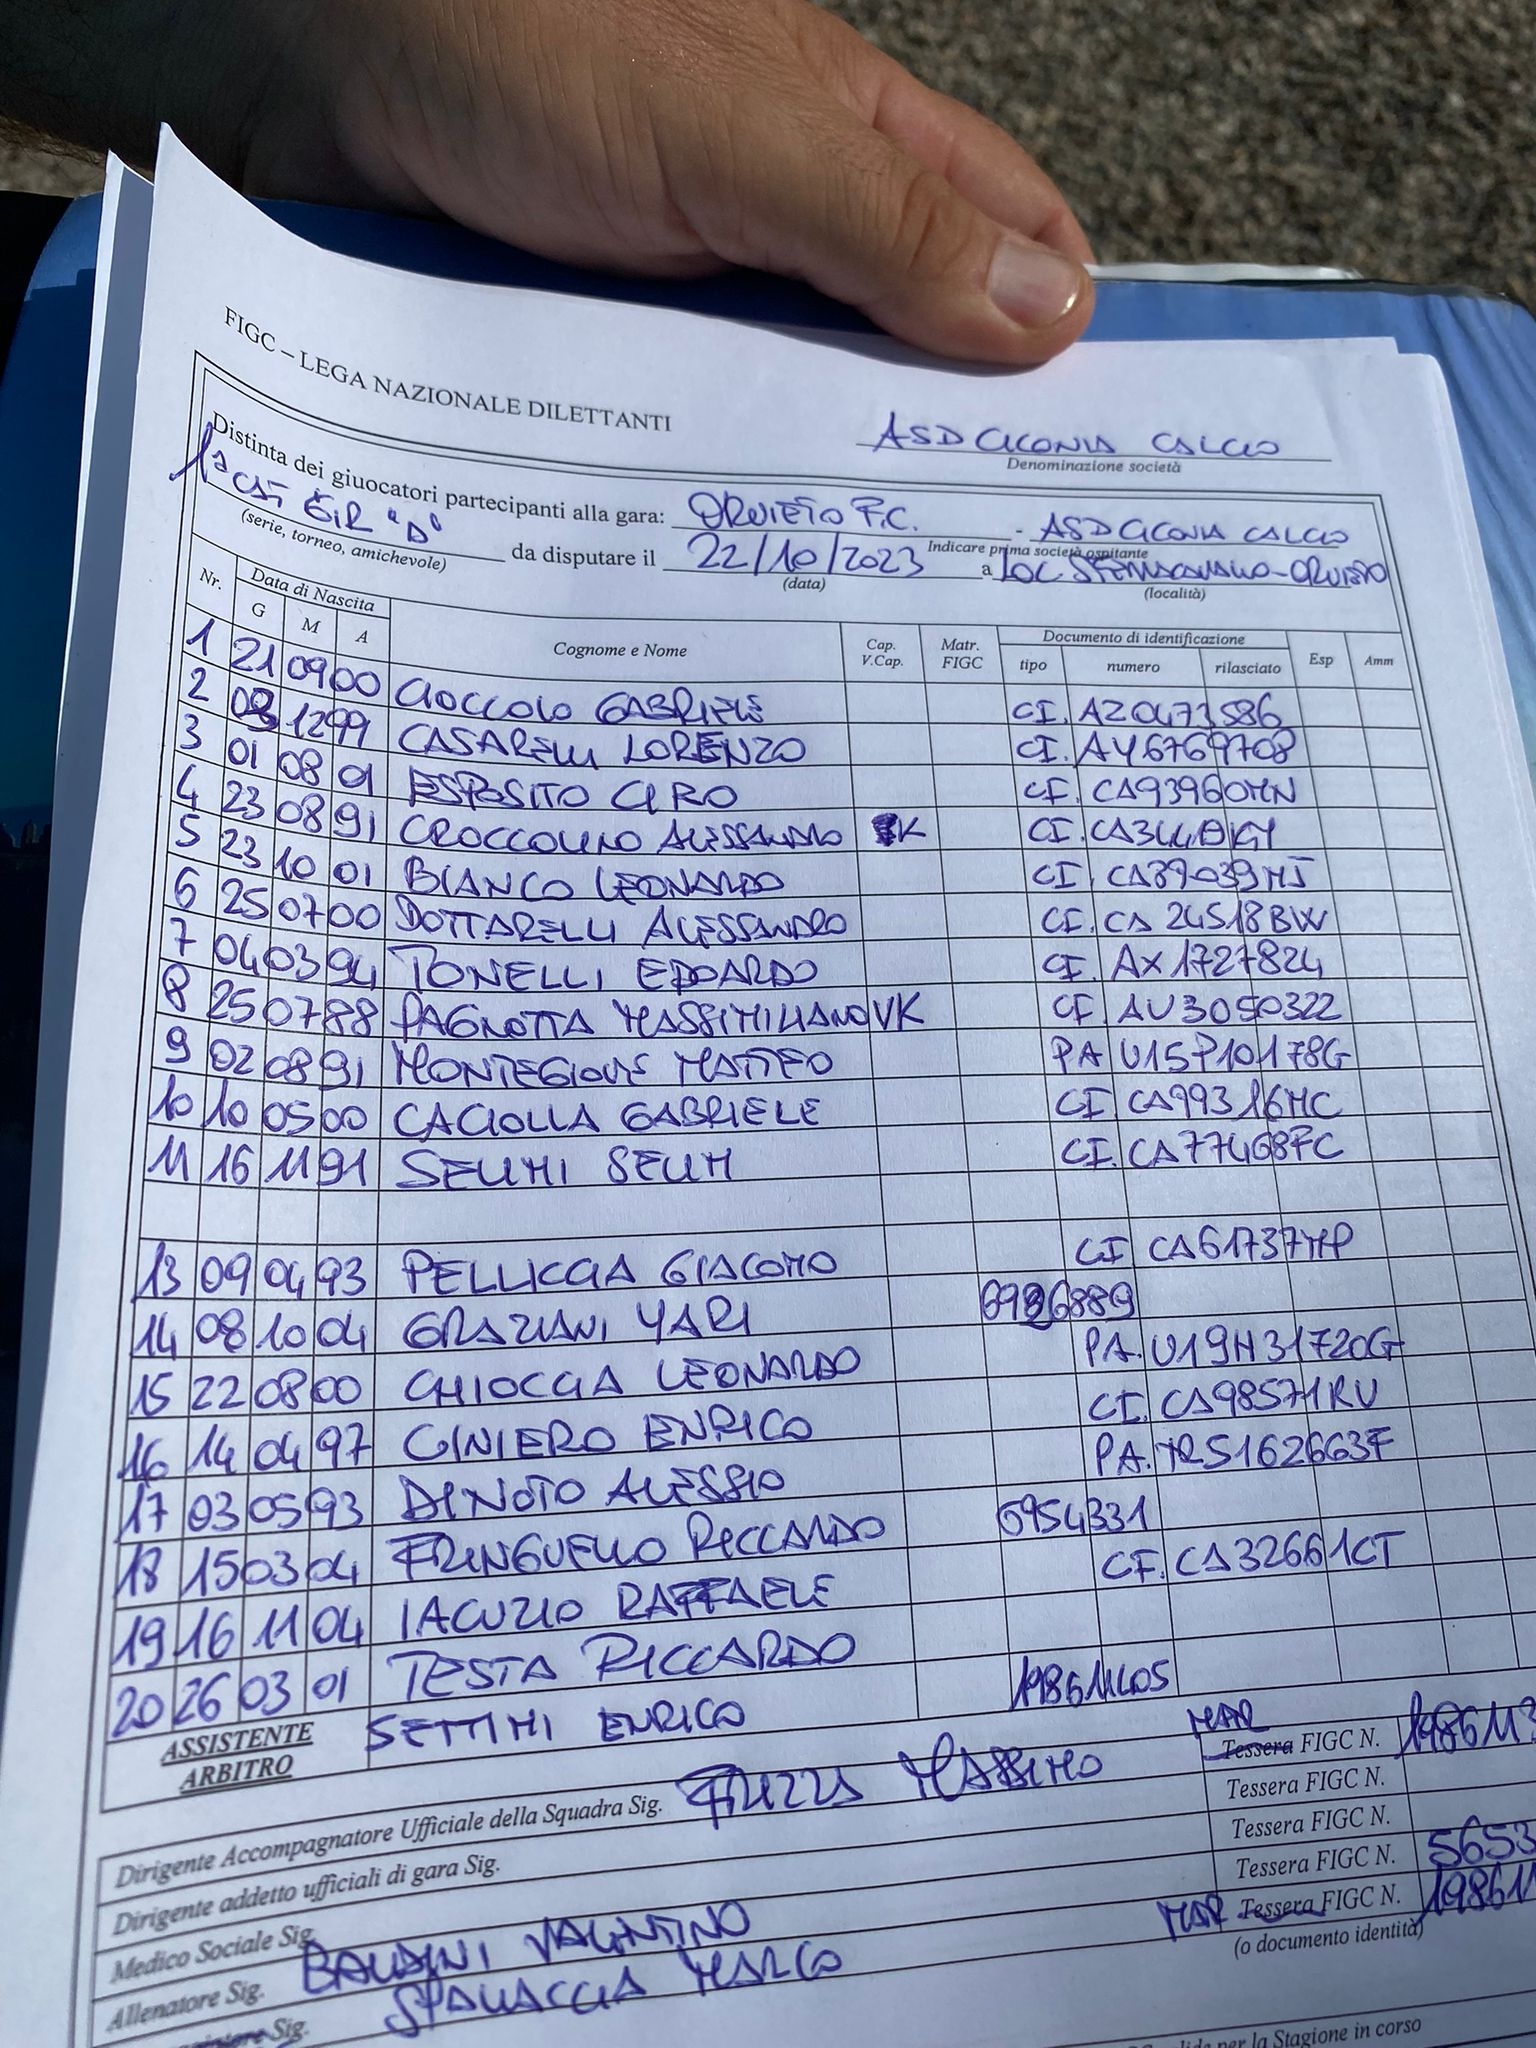 FIGC – LEGA NAZIONALE DILETTANTI
ASD CICONIA CALCIO
Denominazione società
Distinta dei giuocatori partecipanti alla gara: ORVIETO F.C. - ASD CICONIA CALCIO
Indicare prima società ospitante
1ª CAT GIR "D" da disputare il 22/10/2023 a LOC. - ORVIETO
(serie, torneo, amichevole) (data) (località)
Nr. Data di Nascita Cognome e Nome Cap. V.Cap. Matr. FIGC Documento di identificazione Esp Amm
G M A tipo numero rilasciato
1 21 09 00 CIOCCOLO GABRIELE CI. AZ0473586
2 08 12 99 CASARELLI LORENZO CI. AY6769708
3 01 08 01 ESPOSITO CIRO CI. CA93960MN
4 23 08 91 CROCCOLINO ALESSANDRO K CI.
5 23 10 01 BIANCO LEONARDO CI. CA39039MJ
6 25 07 00 DOTTARELLI ALESSANDRO CI. CA 24518BW
7 04 03 94 TONELLI EDOARDO CI. AX1727824
8 25 07 88 PAGNOTTA MASSIMILIANO VK CI AU3050322
9 02 08 91 MONTEGIOVE MATTEO PA U15P10178G
10 10 05 00 CACIOLLA GABRIELE CI CA99316MC
11 16 11 91 SELIMI SELIM CI. CA77468FC
13 09 04 93 PELLICCIA GIACOMO CI CA61737MP
14 08 10 04 GRAZIANI YARI 6926889
15 22 08 00 CHIOCCIA LEONARDO PA. U19H31720G
16 14 04 97 CINIERO ENRICO CI. CA98571RU
17 03 05 93 DI NOTO ALESSIO PA. TR5162663F
18 15 03 04 FRINGUELLO RICCARDO 6954331
19 16 11 04 IACUZIO RAFFAELE CI. CA32661CT
20 26 03 01 TESTA RICCARDO
ASSISTENTE ARBITRO SETTIMI ENRICO
Dirigente Accompagnatore Ufficiale della Squadra Sig. FRIZZA MASSIMO MAR Tessera FIGC N. 1986113
Dirigente addetto ufficiali di gara Sig. Tessera FIGC N.
Medico Sociale Sig. Tessera FIGC N.
Allenatore Sig. BALDINI VALENTINO Tessera FIGC N. 5653
Sig. SPAVACCIA MARCO MAR Tessera FIGC N. 198611
(o documento identità)
per la Stagione in corso